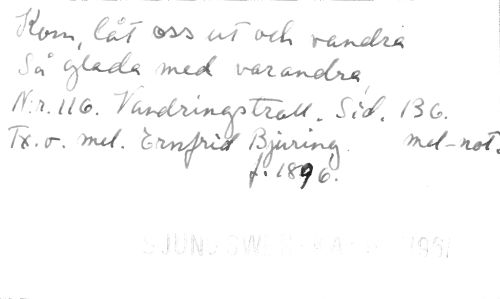 Kom, låt oss ut och vandra
Så glada med varandra
N:r.116. Vandringstrall. Sid. 136.
Tx.o. mel. Ernfrid Bjuring. mel-not.
f. 1896.